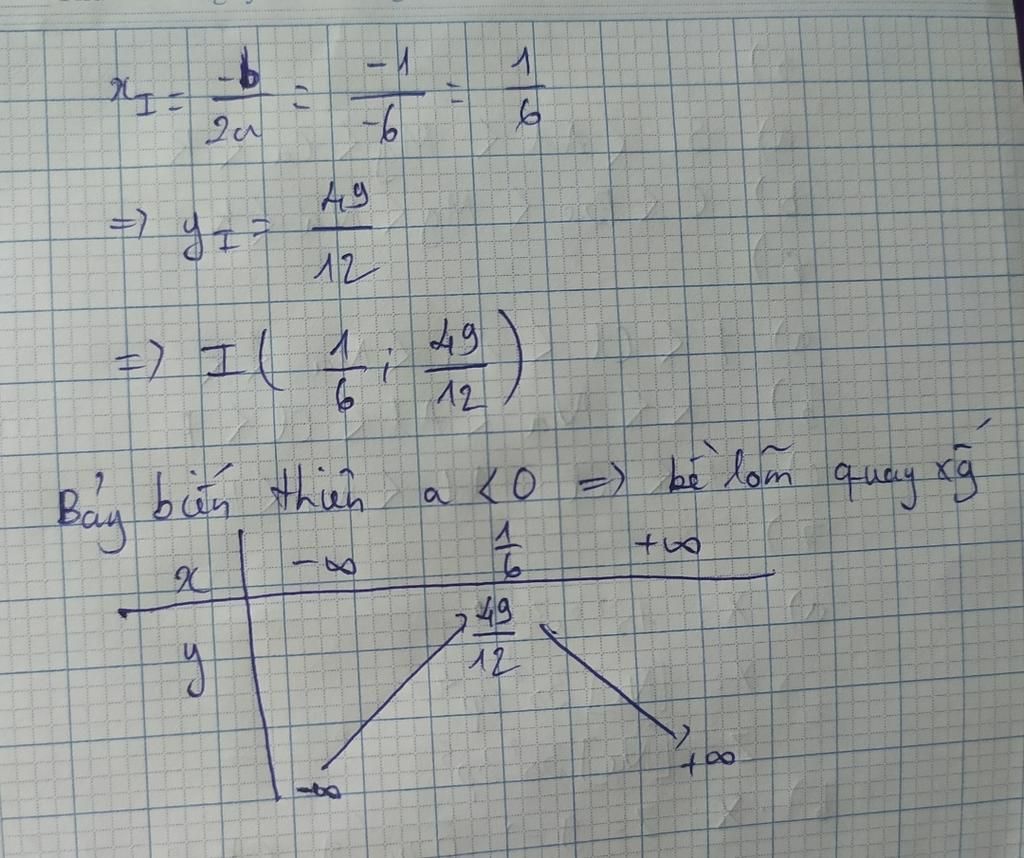 x_I = -b/2a = -1/-6 = 1/6
=> y_I = 49/12
=> I( 1/6 ; 49/12 )
Bảy biến thiên a < 0 => bề lõm quay xg
x -∞ 1/6 +∞
y 49/12
-∞ +∞